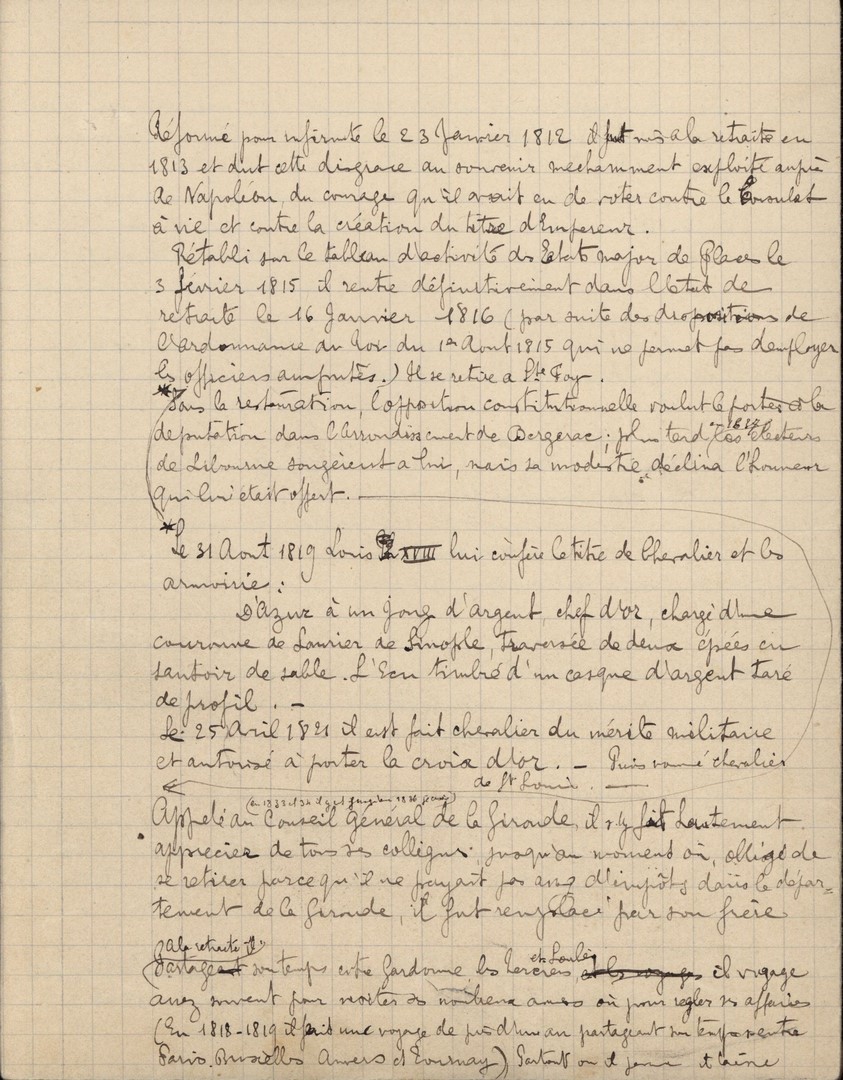 Réformé pour infirmité le 23 Janvier 1812 il fut mis a la retraite en
1813 et dut cette disgrace au souvenir mechamment exploité auprès
de Napoléon, du courage qu'il avait eu de voter contre le Consulat
à vie et contre la création du titre d'Empereur.
Rétabli sur le tableau d'activité des Etats major de Places le
3 février 1815 il rentre définitivement dans l'Etat de
retraite le 16 Janvier 1816 (par suite des dispositions de
l'Ordonnance du Roi du 1er Aout 1815 qui ne permet pas d'employer
les officiers amputés.) Il se retire a Ste Foy.
* Sous la restauration, l'opposition constitutionnelle voulut le porter a la
deputation dans l'Arrondissement de Bergerac; plus tard, en 1827 les électeurs
de Libourne songèrent a lui, mais sa modestie déclina l'honneur
qui lui était offert. —
* Le 31 Aout 1819 Louis XVIII lui confère le titre de Chevalier et les
armoirie :
D'Azur à un Joug d'argent, chef d'or, chargé d'une
couronne de Laurier de Sinople, traversée de deux épées en
sautoir de sable. L'Ecu timbré d'un casque d'argent taré
de profil. —
Le 25 Avril 1821 il est fait chevalier du mérite militaire
et autorisé à porter la croix d'or. — Puis nommé chevalier
de St Louis. —
(en 1833 et 34 il y est jusqu'en 1836)
Appelé au Conseil Général de la Gironde, il s'y fait hautement
apprecier de tous ses collègues jusqu'au moment où, obligé de
se retirer parce qu'il ne payait pas d'impôts dans le dépar=
tement de la Gironde, il fut remplacé par son frère
a la retraite il
Partageant son temps entre Gardonne, les et il voyage
assez souvent pour visiter ses nombreux amis où pour regler ses affaires
(En 1818-1819 il fait une voyage de près d'un an partageant son temps entre
Paris, Bruxelles Anvers et Tournay) Partout ou il passe il laisse